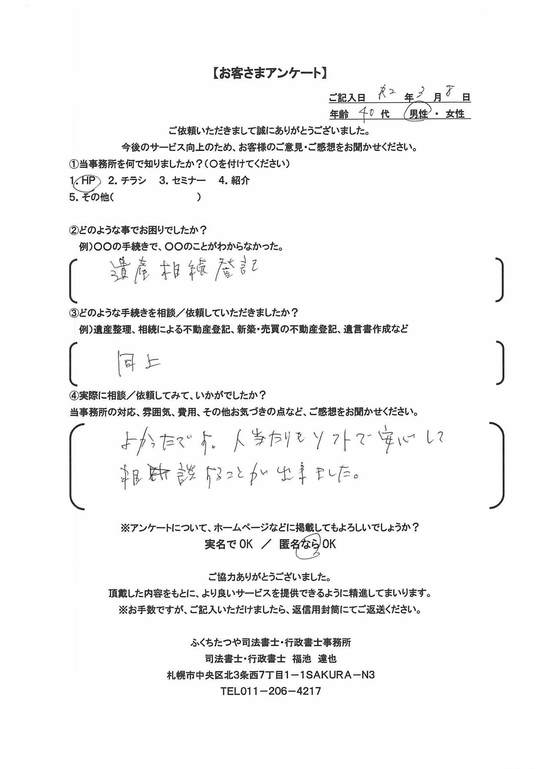 【お客さまアンケート】
ご記入日 R2 年 3 月 8 日
年齢 40 代 男性 ・ 女性
ご依頼いただきまして誠にありがとうございました。
今後のサービス向上のため、お客様のご意見・ご感想をお聞かせください。
①当事務所を何で知りましたか？(○を付けてください)
1. HP 2. チラシ 3. セミナー 4. 紹介
5. その他( )
②どのような事でお困りでしたか？
例)○○の手続きで、○○のことがわからなかった。
遺産相続登記
③どのような手続きを相談／依頼していただきましたか？
例)遺産整理、相続による不動産登記、新築・売買の不動産登記、遺言書作成など
同上
④実際に相談／依頼してみて、いかがでしたか？
当事務所の対応、雰囲気、費用、その他お気づきの点など、ご感想をお聞かせください。
よかったです。人当たりもソフトで安心して
相談することが出来ました。
※アンケートについて、ホームページなどに掲載してもよろしいでしょうか？
実名で OK ／ 匿名なら OK
ご協力ありがとうございました。
頂戴した内容をもとに、より良いサービスを提供できるように精進してまいります。
※お手数ですが、ご記入いただけましたら、返信用封筒にてご返送ください。
ふくちたつや司法書士・行政書士事務所
司法書士・行政書士 福池 達也
札幌市中央区北3条西7丁目1－1SAKURA－N3
TEL011－206－4217